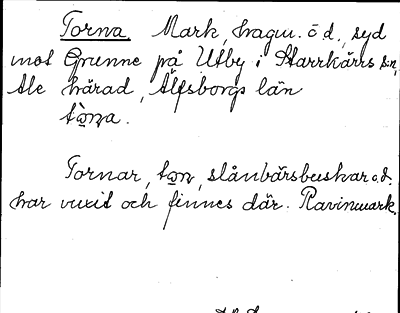 Torna Mark, hagm. o d., syd
mot Grunne på Utby i Starrkärrs sn,
Ale härad, Älfsborgs län
Tornar, slånbärsbuskar o.d.
har vuxit och finnes där. Ravinmark.